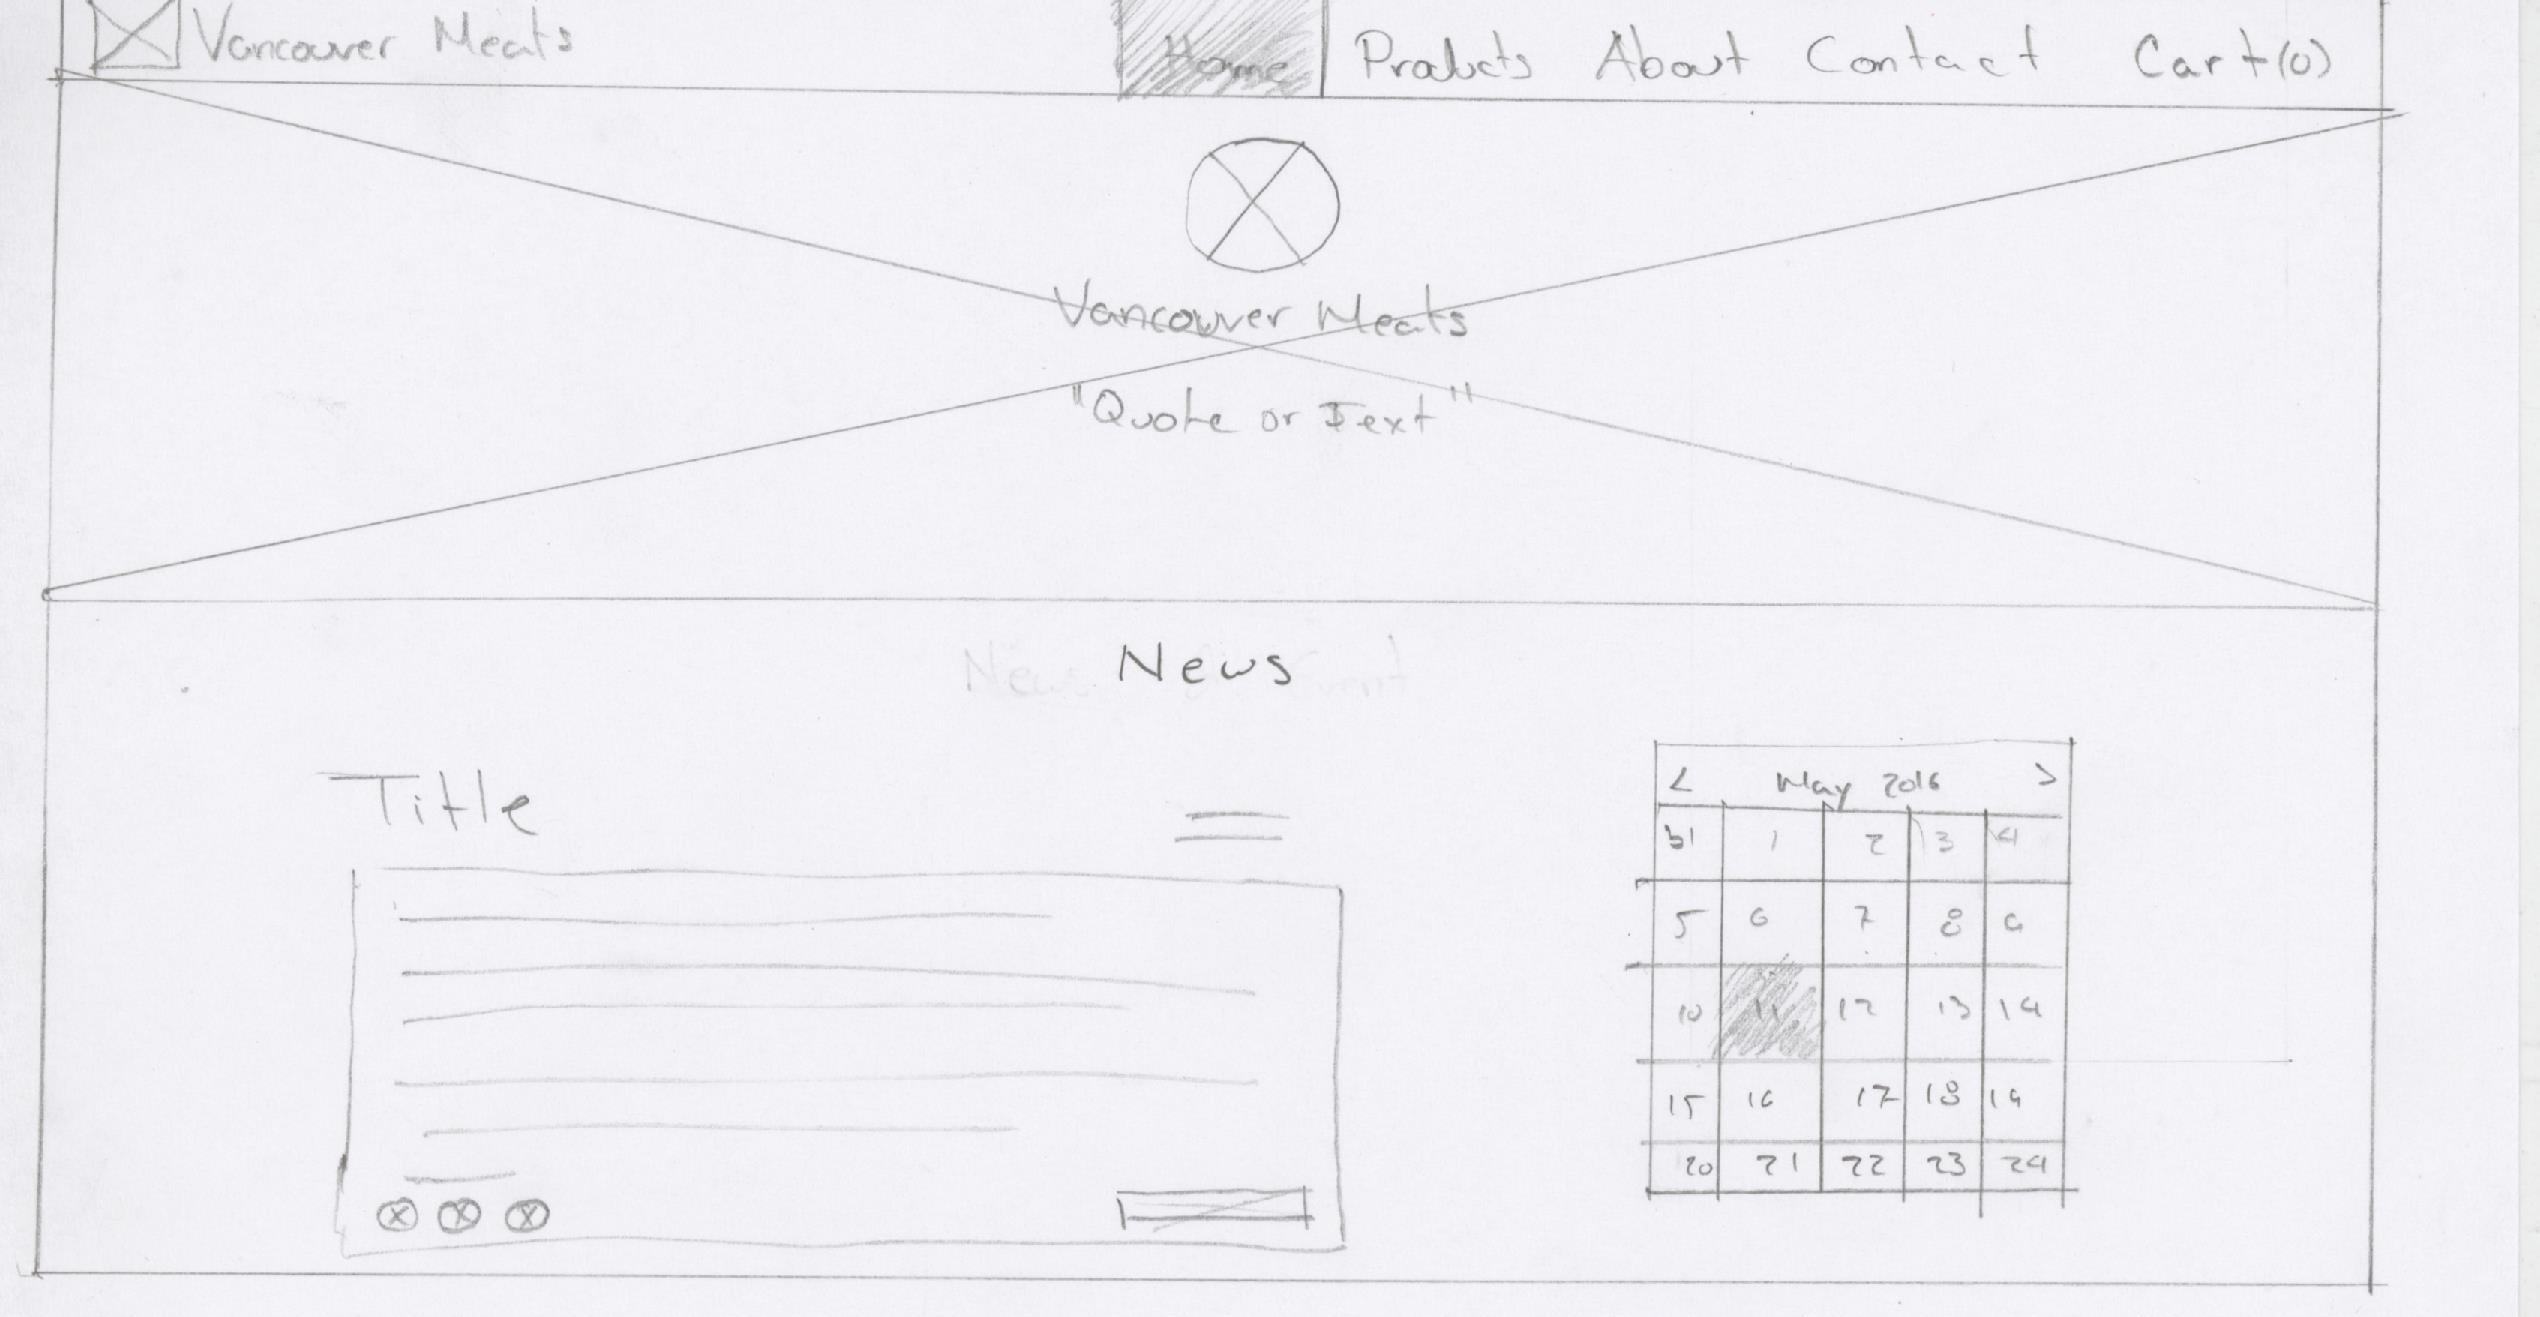 Vancouver Meats Home Products About Contact Cart(0)
Vancouver Meats
"Quote or Text"
News
Title
< May 2016 >
31 1 2 3 4
5 6 7 8 9
10 11 12 13 14
15 16 17 18 19
20 21 22 23 24